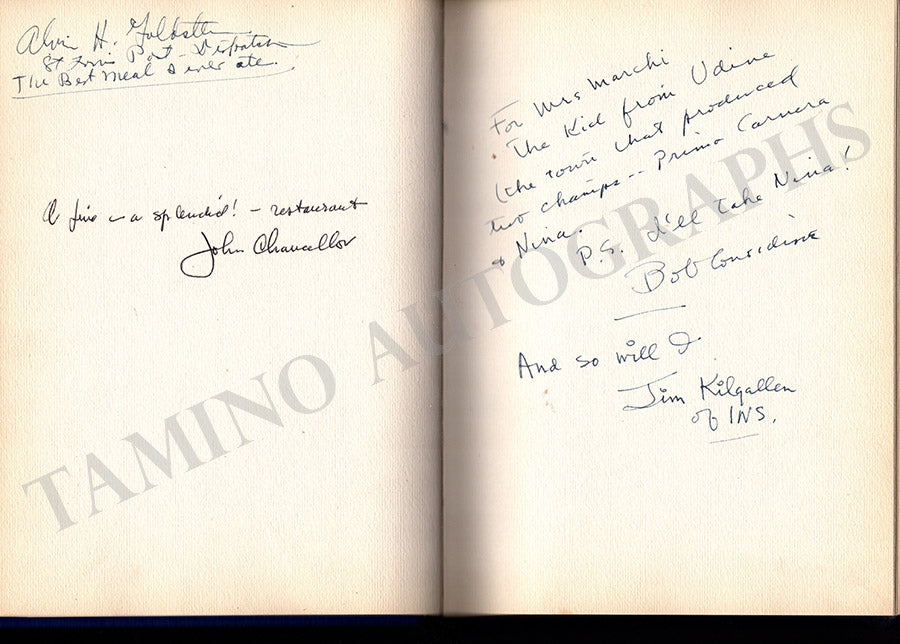 Alvin H. Goldstein
St Louis Post-Dispatch
The Best Meal I ever ate.
A fine — a splendid! — restaurant
John Chancellor
For Mrs Marchi
The Kid from Udine
(the town that produced
two champs -- Primo Carnera
+ Nina.
P.S. I'll take Nina!
Bob Considine
And so will I.
Jim Kilgallen
of INS.
TAMINO AUTOGRAPHS